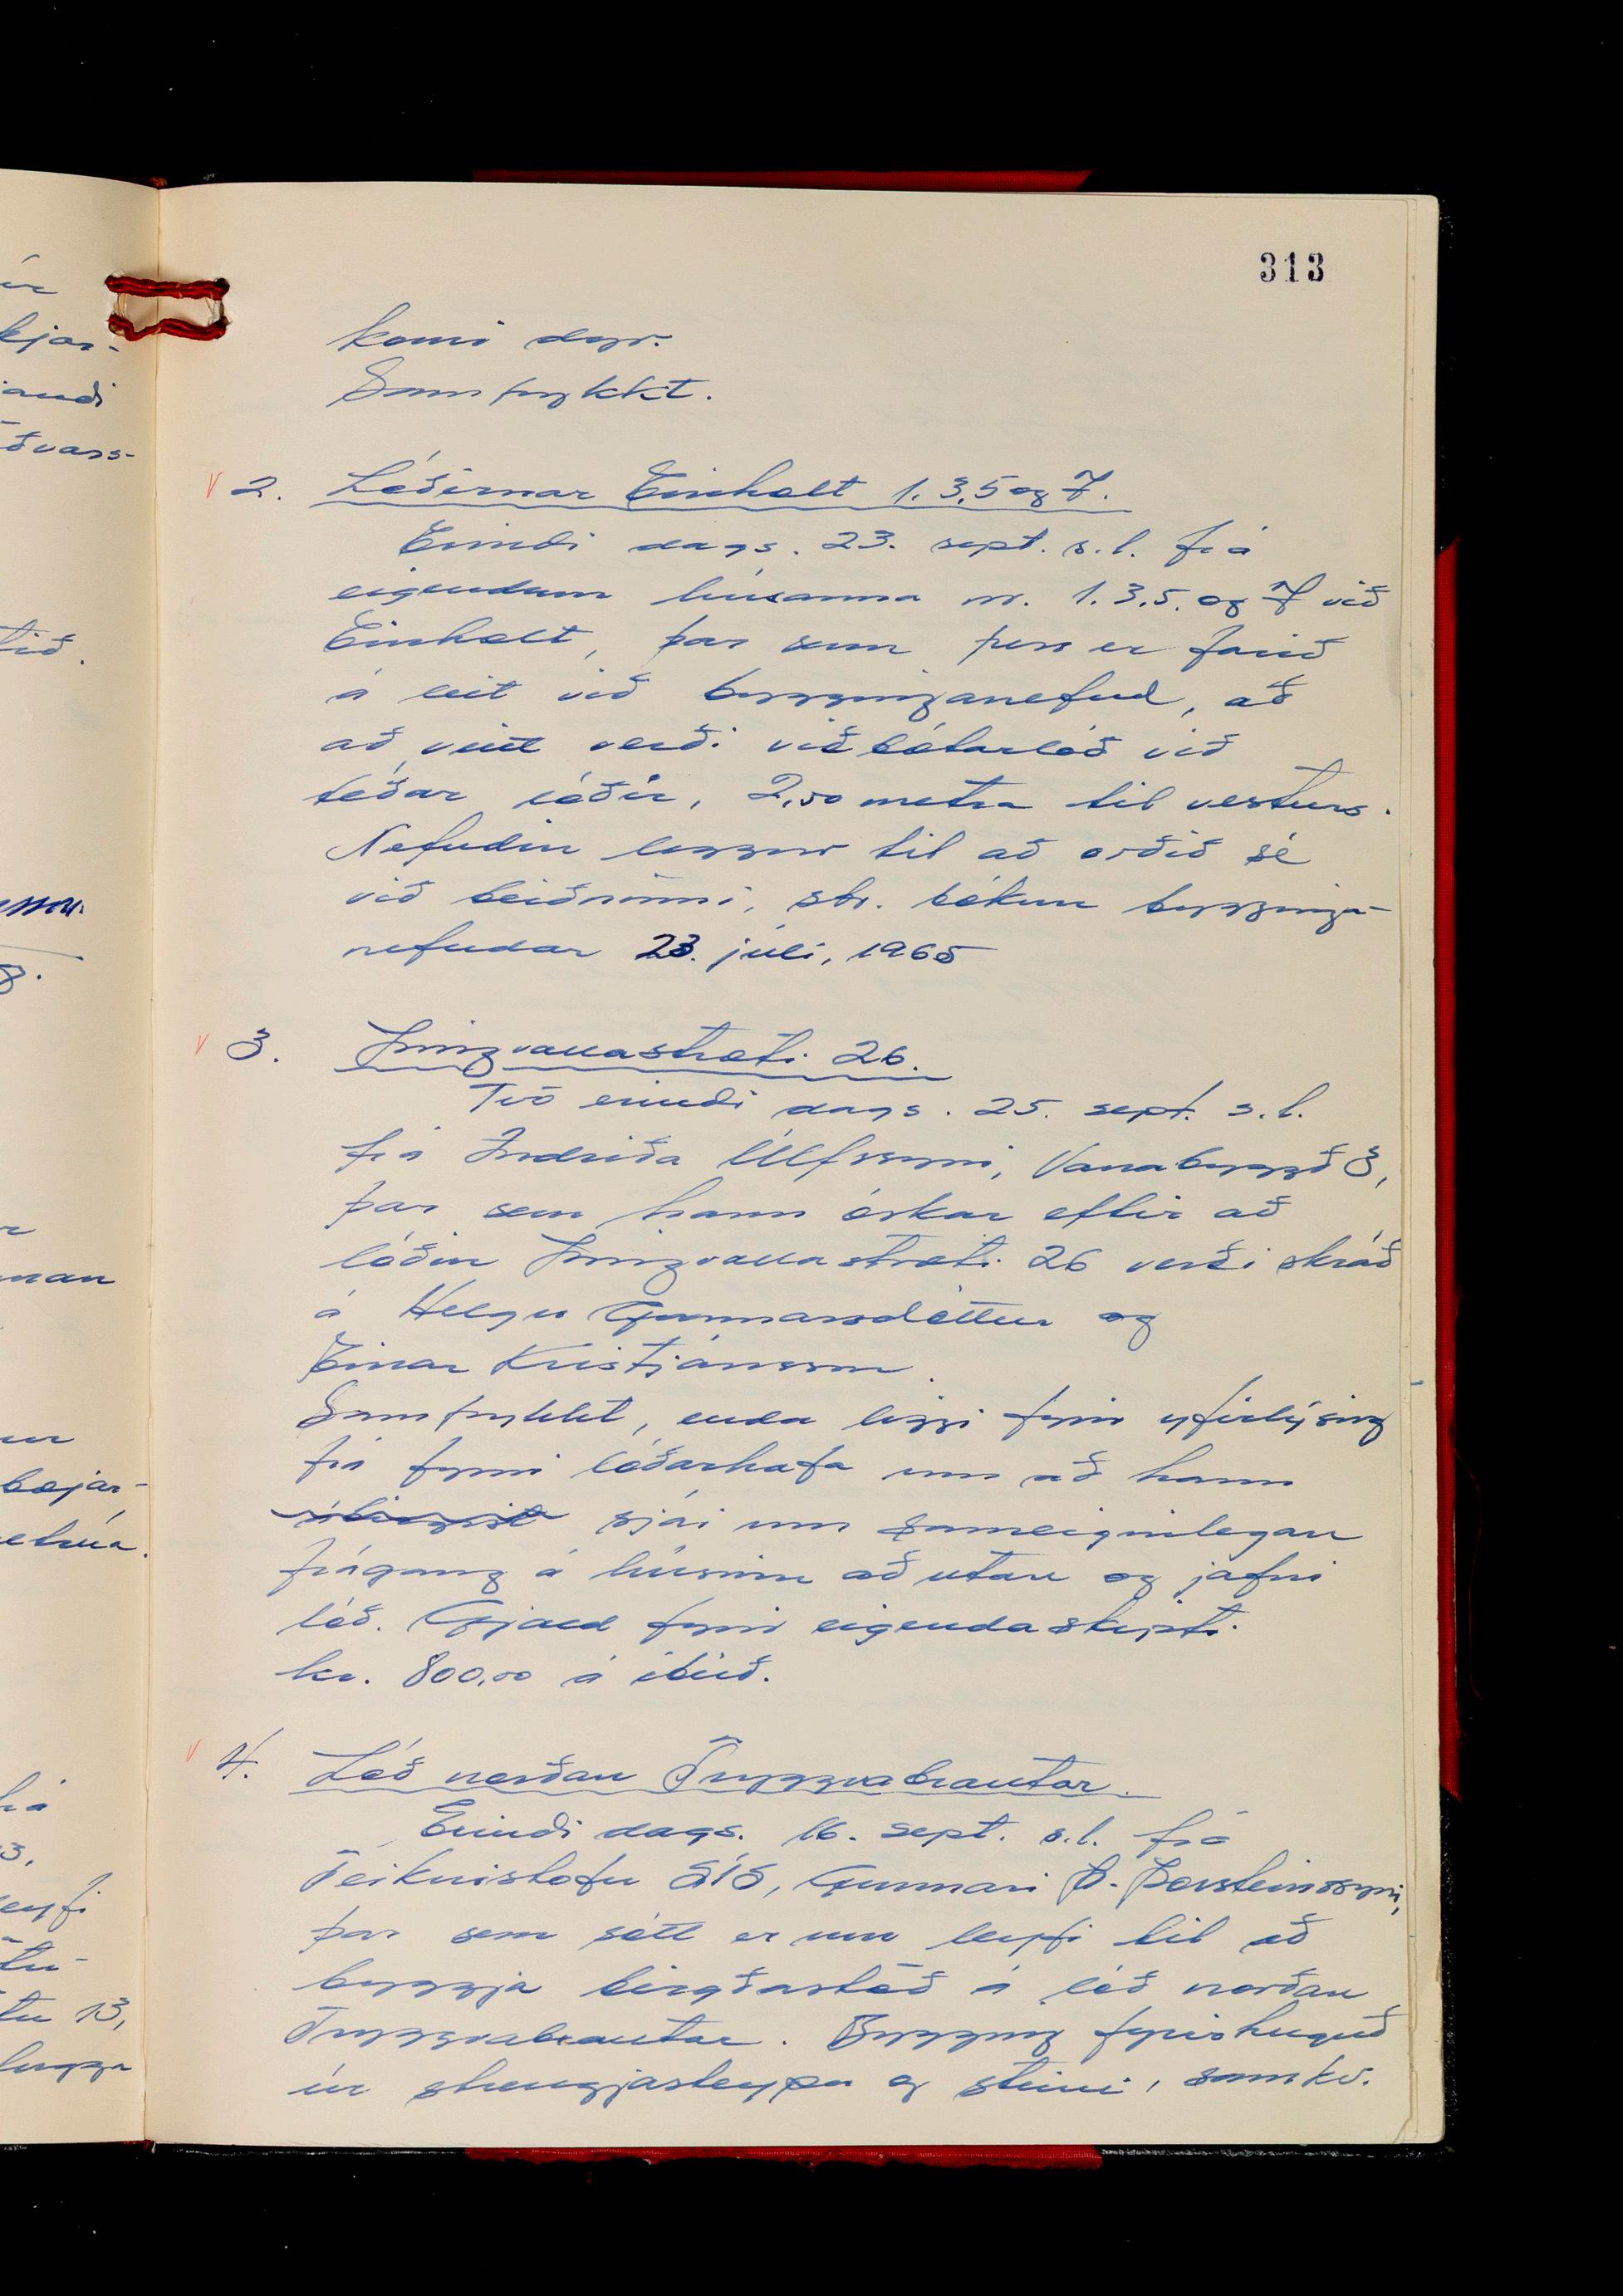 313
komi dyr.
Samþykkt.
v 2. Lóðirnar Einholt 1.3.5 og 7.
Erindi dags. 23. sept. s.l. frá
eigendum húsanna nr. 1.3.5. og 7 við
Einholt, þar sem þess er farið
á leit við bygginganefnd, að
að veitt verði viðbótarlóð við
téðar lóðir, 2,50 metra til vesturs.
Nefndin leggur til að orðið sé
við beiðninni, sbr. bókun bygginga-
nefndar 23. júlí, 1965
v 3. Þingvallastræti 26.
Tvö erindi dags. 25. sept. s.l.
frá Indriða Úlfssyni, Vanabyggð 3,
þar sem hann óskar eftir að
lóðin Þingvallastræti 26 verði skráð
á Helgu Gunnarsdóttur og
Einar Kristjánsson.
Samþykkt, enda liggi fyrir yfirlýsing
frá fyrri lóðarhafa um að hann
sjái um sameiginlegan
frágang á húsinu að utan og jafni
lóð. Gjald fyrir eigendaskipti
kr. 800,00 á íbúð.
v 4. Lóð norðan Tryggvabrautar.
Erindi dags. 16. sept. s.l. frá
Teiknistofu SÍS, Gunnari Þ. Þorsteinssyni,
þar sem sótt er um leyfi til að
byggja birgðastöð á lóð norðan
Tryggvabrautar. Bygging fyrirhuguð
úr strengjasteypu og steini, samkv.